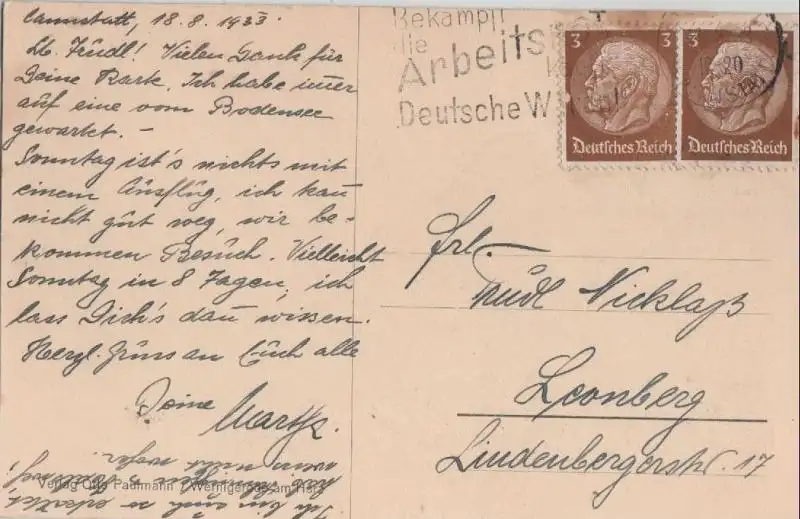 Cannstatt, 18.8.1933
Lb. Trudl! Vielen Dank für
Deine Karte. Ich habe im̄er
auf eine vom Bodensee
gewartet. –
Sonntag ist's nichts mit
einem Ausflug, ich kan̄
nicht gut weg, wir be-
kommen Besuch. Vielleicht
Sonntag in 8 Tagen, ich
lass Dich's dan̄ wissen.
Herzl. Grüss an Euch alle
Deine
Verlag Otto Paulmann / Wernigerode am Harz
Bekämpft
die
Arbeits
Deutsche W
3
Deutsches Reich
3
Deutsches Reich
20
Frl.
Trudl Nicklaß
Leonberg
Lindenbergerstr. 17